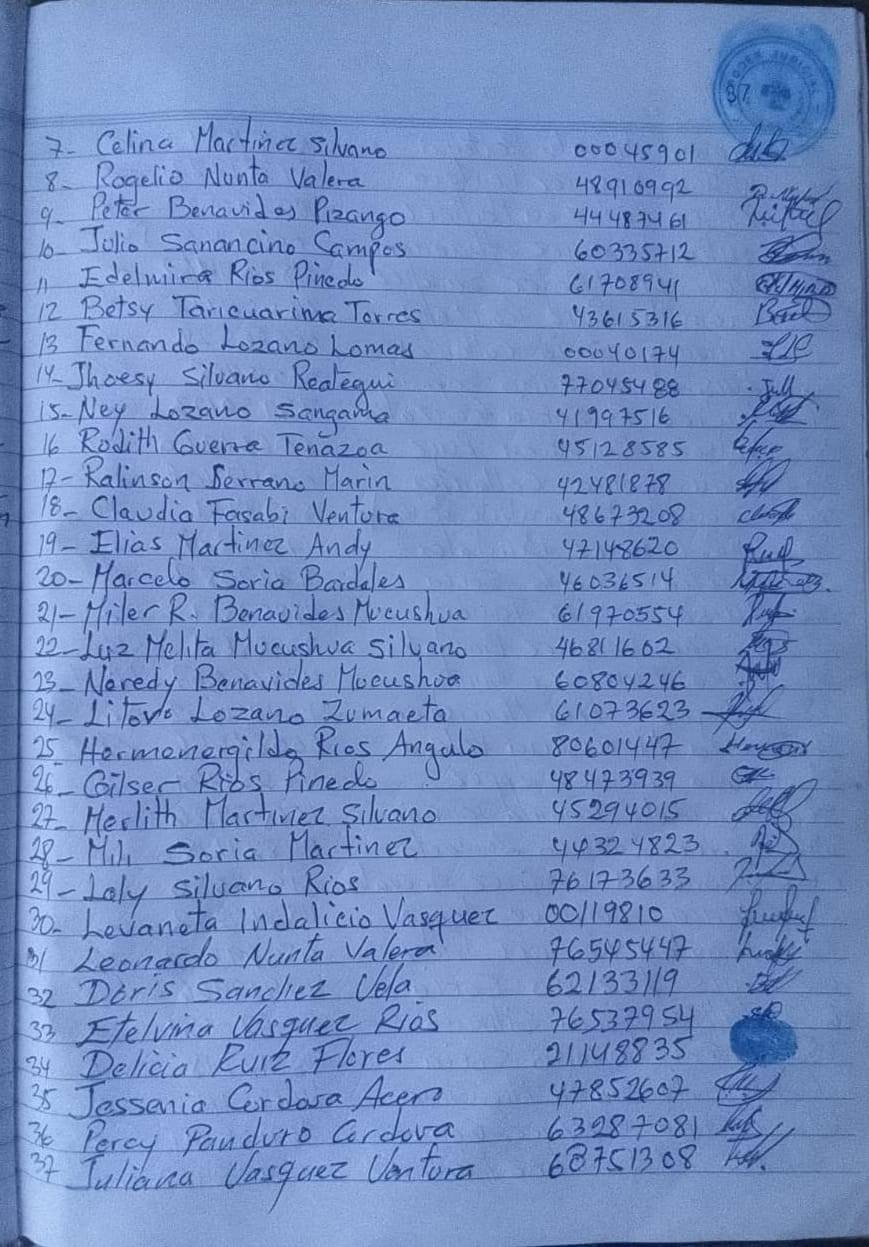 PODER JUDICIAL
87
7- Celina Martinez Silvano 00045901
8- Rogelio Nunta Valera 48910992
9- Peter Benavides Pizango 44487461
10- Julio Sanancino Campos 60335712
11 Edelmira Rios Pinedo 61708941
12 Betsy Taricuarima Torres 43615316
13 Fernando Lozano Lomas 00040174
14- Jhoesy Silvano Reategui 77045488
15- Ney Lozano Sangama 41997516
16 Rodith Guerra Tenazoa 45128585
17- Ralinson Serrano Marin 42481878
18- Claudia Fasabi Ventura 48673208
19- Elias Martinez Andy 47148620
20- Marcelo Soria Bardales 46036514
21- Miler R. Benavides Mucushua 61970554
22- Luz Melita Mucushua Silvano 46811602
23- Neredy Benavides Mocushua 60804246
24- Lozano Zumaeta 61073623
25 Hermenergildo Rios Angulo 80601447
26- Gilser Rios Pinedo 48473939
27- Merlith Martinez Silvano 45294015
28- Mili Soria Martinez 44324823
29- Laly Silvano Rios 76173633
30- Levaneta Indalicio Vasquez 00119810
31 Leonardo Nunta Valera 76545447
32 Doris Sanchez Vela 62133119
33 Etelvina Vasquez Rios 76537954
34 Delicia Ruiz Flores 21148835
35 Jessenia Cordova Acero 47852607
36 Percy Panduro Cordova 63287081
37 Juliana Vasquez Ventura 68751308